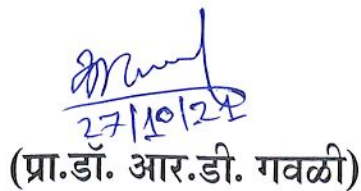 27/10/21
(प्रा.डॉ. आर.डी. गवळी)